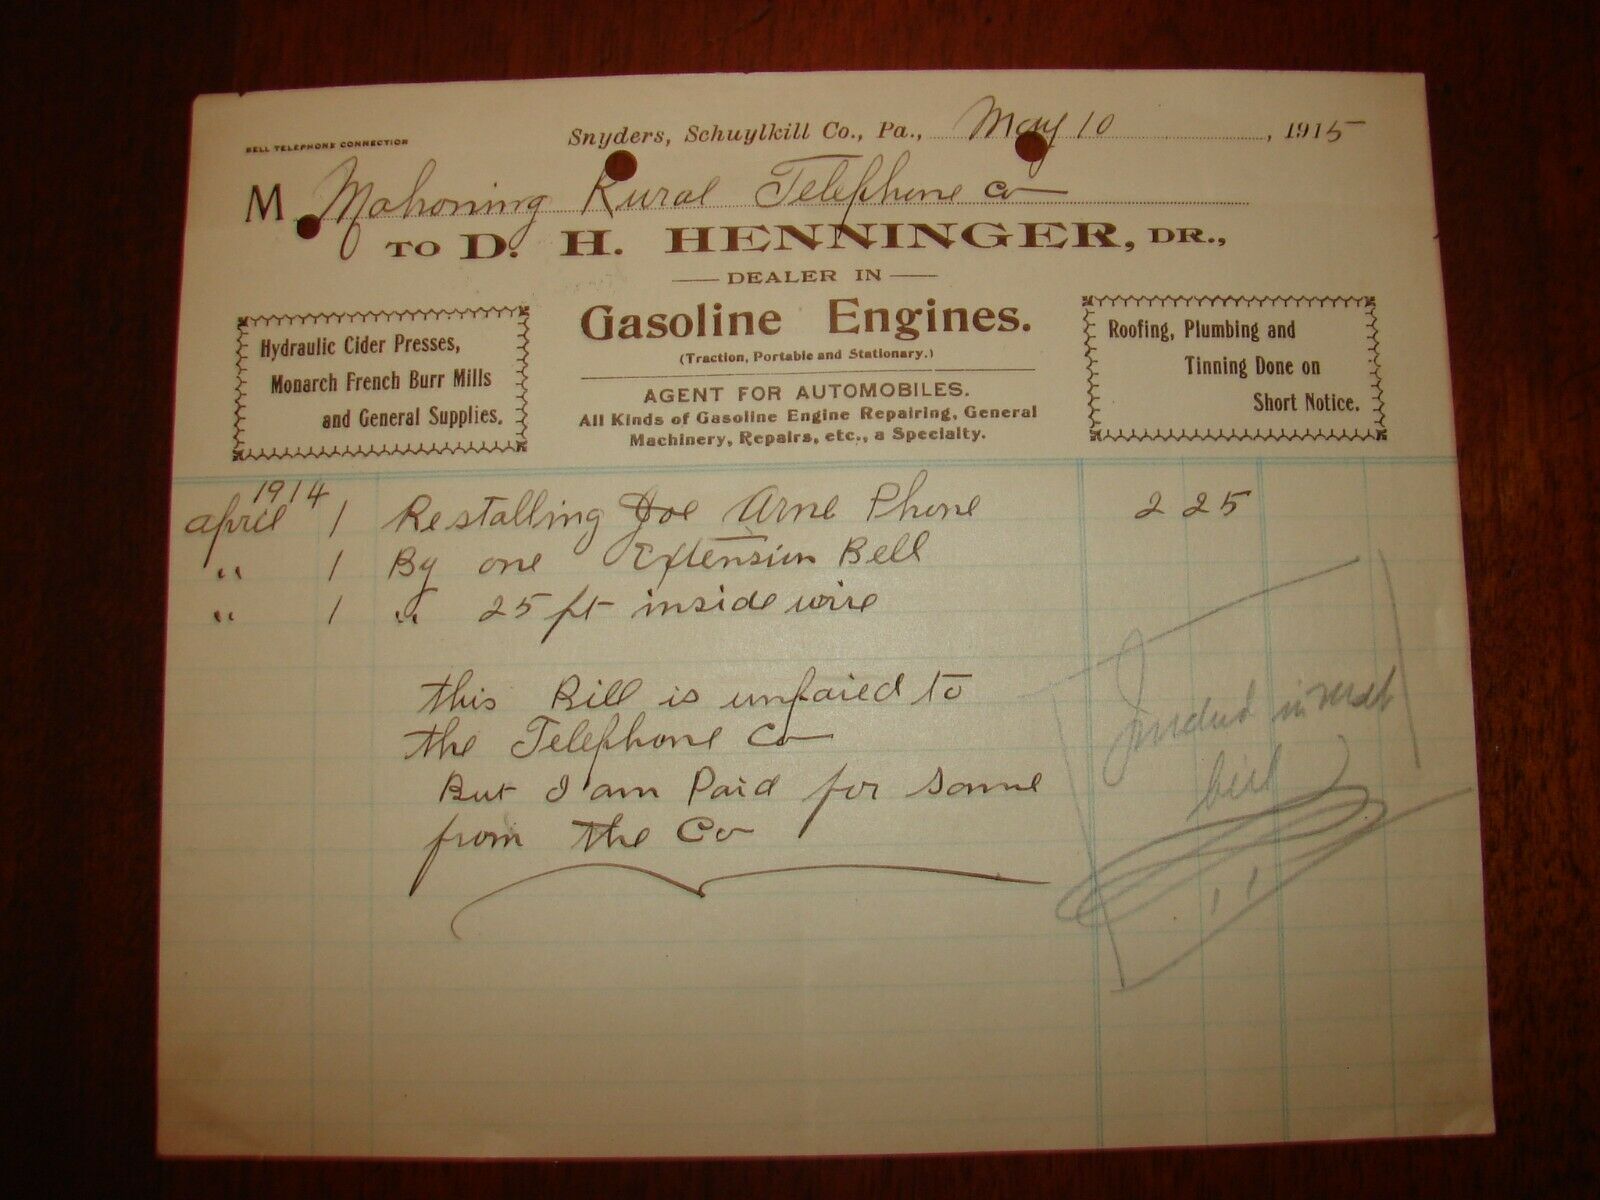 BELL TELEPHONE CONNECTION
Snyders, Schuylkill Co., Pa., May 10, 1915
M Mahoning Rural Telephone Co
TO D. H. HENNINGER, DR.,
DEALER IN
Gasoline Engines.
(Traction, Portable and Stationary.)
AGENT FOR AUTOMOBILES.
All Kinds of Gasoline Engine Repairing, General
Machinery, Repairs, etc., a Specialty.
Hydraulic Cider Presses,
Monarch French Burr Mills
and General Supplies.
Roofing, Plumbing and
Tinning Done on
Short Notice.
1914
april 1 Restalling Joe Arne Phone 2 25
" 1 By one Extension Bell
" 1 " 25 ft inside wire
this Bill is unpaied to
the Telephone Co
But I am Paid for Same
from the Co
in
bill